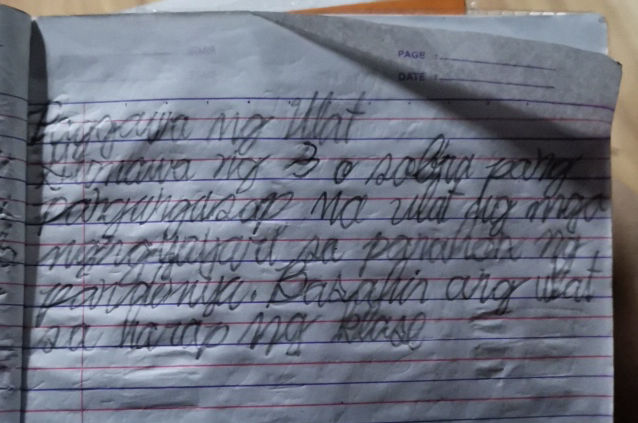 PAGE :
DATE :
Paggawa ng Ulat
Gumawa ng 3 o sobra pang
pangungusap na ulat ng mga
nangyayari sa panahon ng
pandemya. Basahin ang ulat
sa harap ng klase